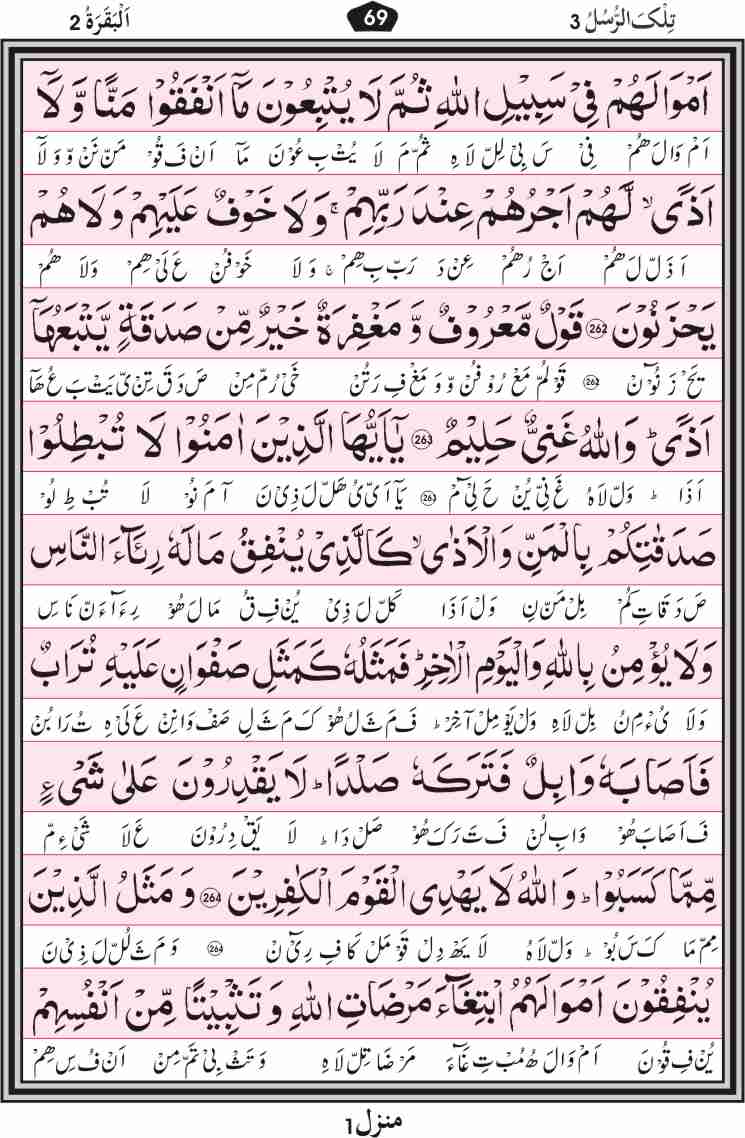 تِلْكَ الرُّسُلُ 3
69
اَلْبَقَرَةُ 2
اَمْوَالَهُمْ فِیْ سَبِیْلِ اللّٰهِ ثُمَّ لَا یُتْبِعُوْنَ مَاۤ اَنْفَقُوْا مَنًّا وَّ لَاۤ
اَمْ وَالَ هُمْ فِیْ سَ بِیْ لِلْ لَاہِ ثُمْ مَ لَا یُتْ بِ عُوْنَ مَآ اَنْ فَ قُوْ مَنْ نَنْ وَّ وَ لَآ
اَذًىۙ لَّهُمْ اَجْرُهُمْ عِنْدَ رَبِّهِمْۚ وَ لَا خَوْفٌ عَلَیْهِمْ وَ لَا هُمْ
اَ ذَلْ لَ هُمْ اَجْ رُ هُمْ عِنْ دَ رَبْ بِ هِمْۚ وَ لَا خَوْ فُنْ عَ لَیْ هِمْ وَلَا هُمْ
یَحْزَنُوْنَ 262 قَوْلٌ مَّعْرُوْفٌ وَّ مَغْفِرَةٌ خَیْرٌ مِّنْ صَدَقَةٍ یَّتْبَعُهَاۤ
یَحْ زَ نُوْٓ نْ 262 قَوْ لُمْ مَعْ رُوْ فُنْ وَّ وَ مَغْ فِ رَتُنْ خَیْ رُمْ مِنْ صَ دَ قَ تِنْ یْ یَتْ بَ عُ هَآ
اَذًىؕ وَ اللّٰهُ غَنِیٌّ حَلِیْمٌ 263 یٰۤاَیُّهَا الَّذِیْنَ اٰمَنُوْا لَا تُبْطِلُوْا
اَ ذَاؕ وَلْ لَاہُ غَ نِیْ یُنْ حَ لِیْٓ مْ 26 یَآ اَیْ یُ هَلْ لَ ذِیْ نَ آ مَ نُوْ لَا تُبْ طِ لُوْ
صَدَقٰتِكُمْ بِالْمَنِّ وَ الْاَذٰىۙ كَالَّذِیْ یُنْفِقُ مَالَهٗ رِئَآءَ النَّاسِ
صَ دَ قَاتِ کُمْ بِلْ مَنْ نِ وَلْ اَ ذَا کَلْ لَ ذِیْ یُنْ فِ قُ مَا لَ هُوْ رِءَآءَ نْ نَاسِ
وَ لَا یُؤْمِنُ بِاللّٰهِ وَ الْیَوْمِ الْاٰخِرِؕ فَمَثَلُهٗ كَمَثَلِ صَفْوَانٍ عَلَیْهِ تُرَابٌ
وَلَا یُءْ مِ نُ بِلْ لَاہِ وَلْ یَوْ مِلْ آخِرْؕ فَ مَ ثَ لُ هُوْ کَ مَ ثَ لِ صَفْ وَانِنْ عَ لَیْ ہِ تُ رَا بُنْ
فَاَصَابَهٗ وَابِلٌ فَتَرَكَهٗ صَلْدًاؕ لَا یَقْدِرُوْنَ عَلٰى شَیْءٍ
فَ اَ صَابَ هُوْ وَابِ لُنْ فَ تَ رَ کَ هُوْ صَلْ دَاؕ لَا یَقْ دِ رُوْنَ عَ لَا شَیْ ءِ مْ
مِّمَّا كَسَبُوْاؕ وَ اللّٰهُ لَا یَهْدِی الْقَوْمَ الْكٰفِرِیْنَ 264 وَ مَثَلُ الَّذِیْنَ
مِمْ مَا کَ سَ بُوْؕ وَلْ لَاہُ لَا یَهْ دِلْ قَوْ مَلْ کَا فِ رِیْٓ نْ 264 وَ مَ ثَ لُلْ لَ ذِیْ نَ
یُنْفِقُوْنَ اَمْوَالَهُمُ ابْتِغَآءَ مَرْضَاتِ اللّٰهِ وَ تَثْبِیْتًا مِّنْ اَنْفُسِهِمْ
یُنْ فِ قُوْنَ اَمْ وَالَ هُ مُبْ تِ غَآءَ مَرْ ضَا تِلْ لَاہِ وَ تَثْ بِیْ تَمْ مِنْ اَنْ فُ سِ هِمْ
منزل 1